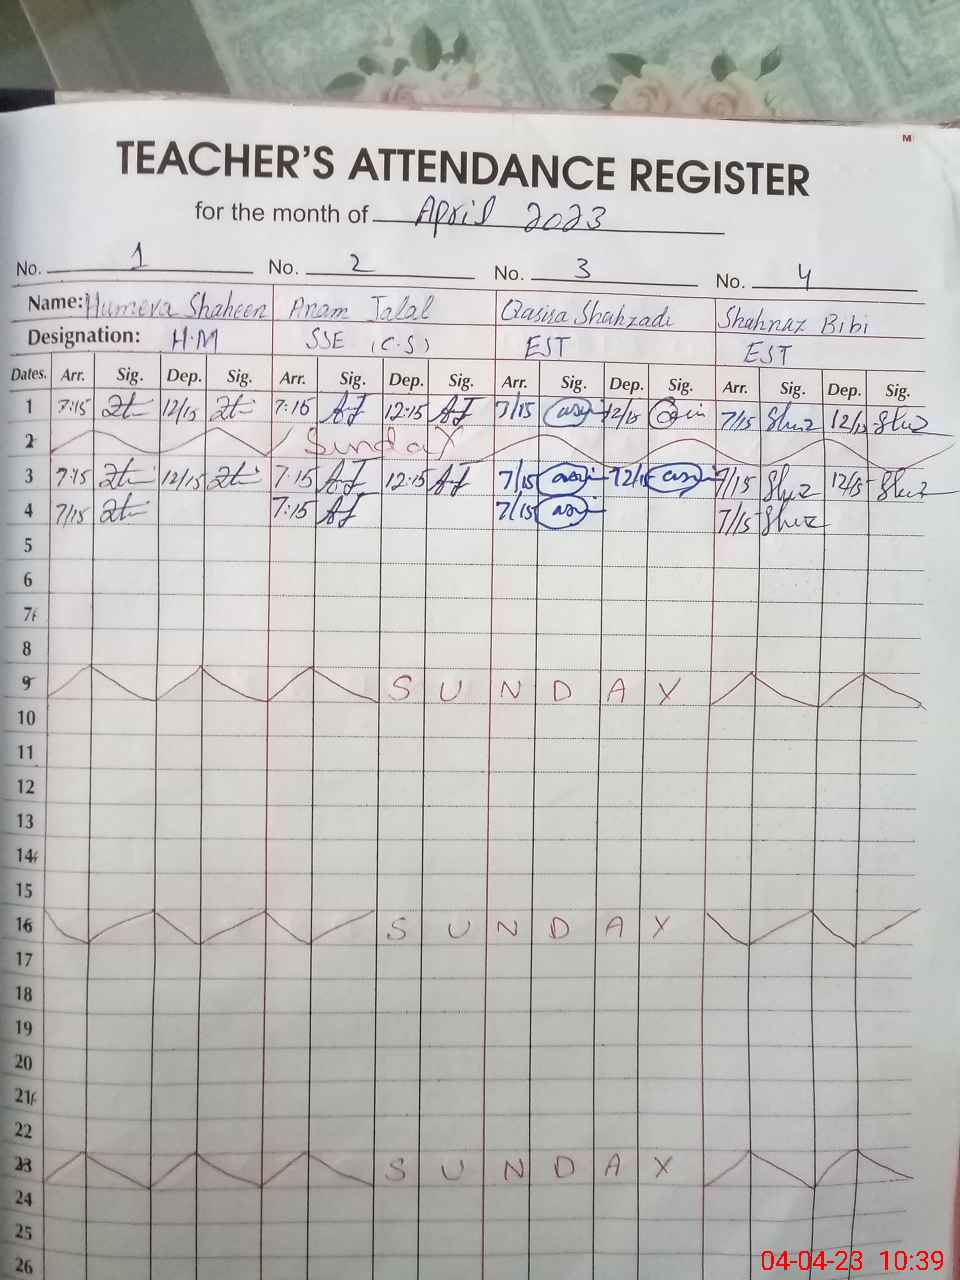 M
TEACHER'S ATTENDANCE REGISTER
for the month of April 2023
No. 1 No. 2 No. 3 No. 4
Name: Humera Shaheen Anam Jalal Qasira Shahzadi Shahnaz Bibi
Designation: H.M SSE (C.S) EST EST
Dates. Arr. Sig. Dep. Sig. Arr. Sig. Dep. Sig. Arr. Sig. Dep. Sig. Arr. Sig. Dep. Sig.
1 7:15 12/15 7:15 AJ 12:15 AJ 7/15 12/15 7/15 12/15
2 Sunday
3 7:15 12/15 7:15 AJ 12:15 AJ 7/15 12/15 7/15 12/15
4 7/15 7:15 AJ 7/15 7/15
5
6
7
8
9 SUNDAY
10
11
12
13
14
15
16 SUNDAY
17
18
19
20
21
22
23 SUNDAY
24
25
26
04-04-23 10:39